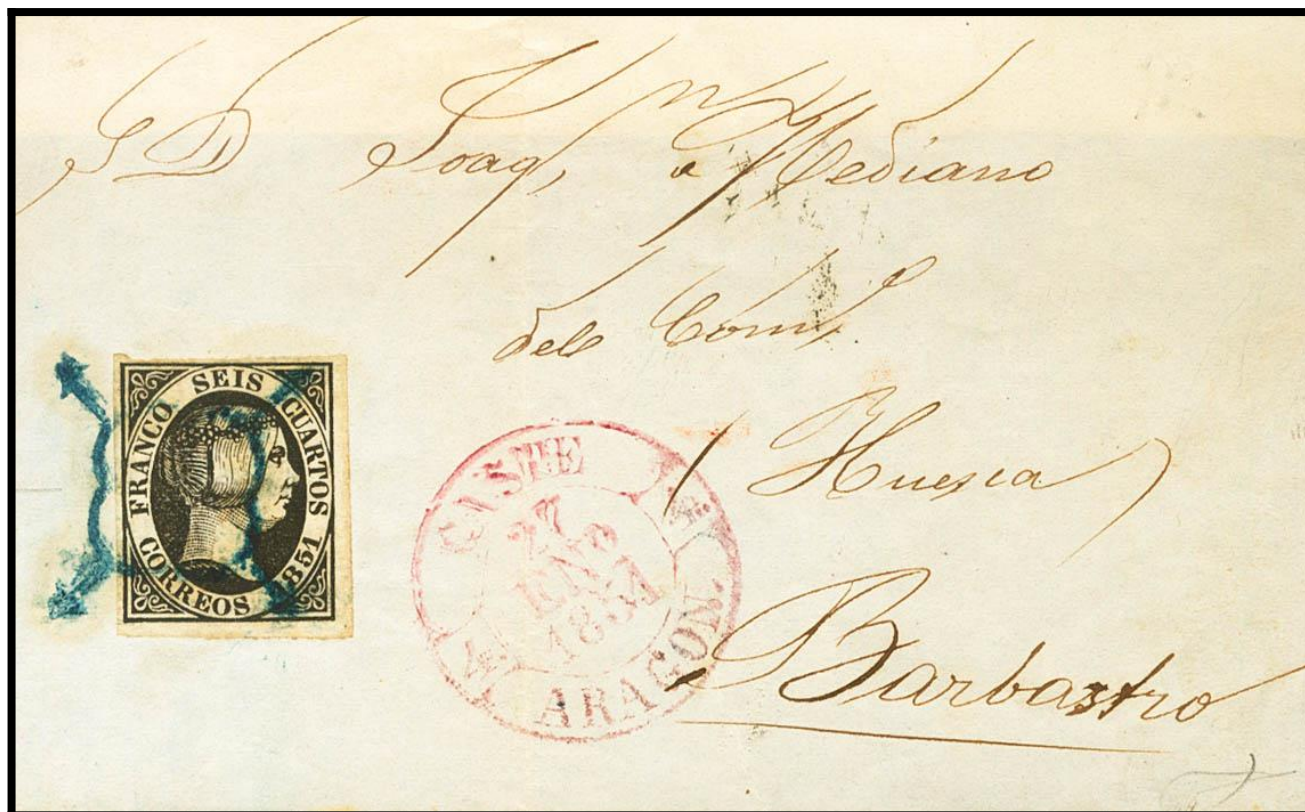 S D Joaqn Mediano
del Com.º
(Huesca)
Barbastro
FRANCO SEIS CUARTOS
CORREOS 1851
CASPE
27
ENº
1851
ARAGON.